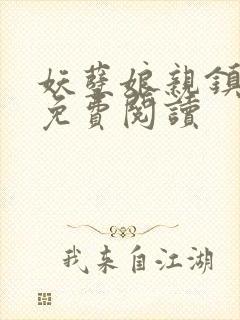 妖孽娘親鎮
免費閱讀
我来自江湖